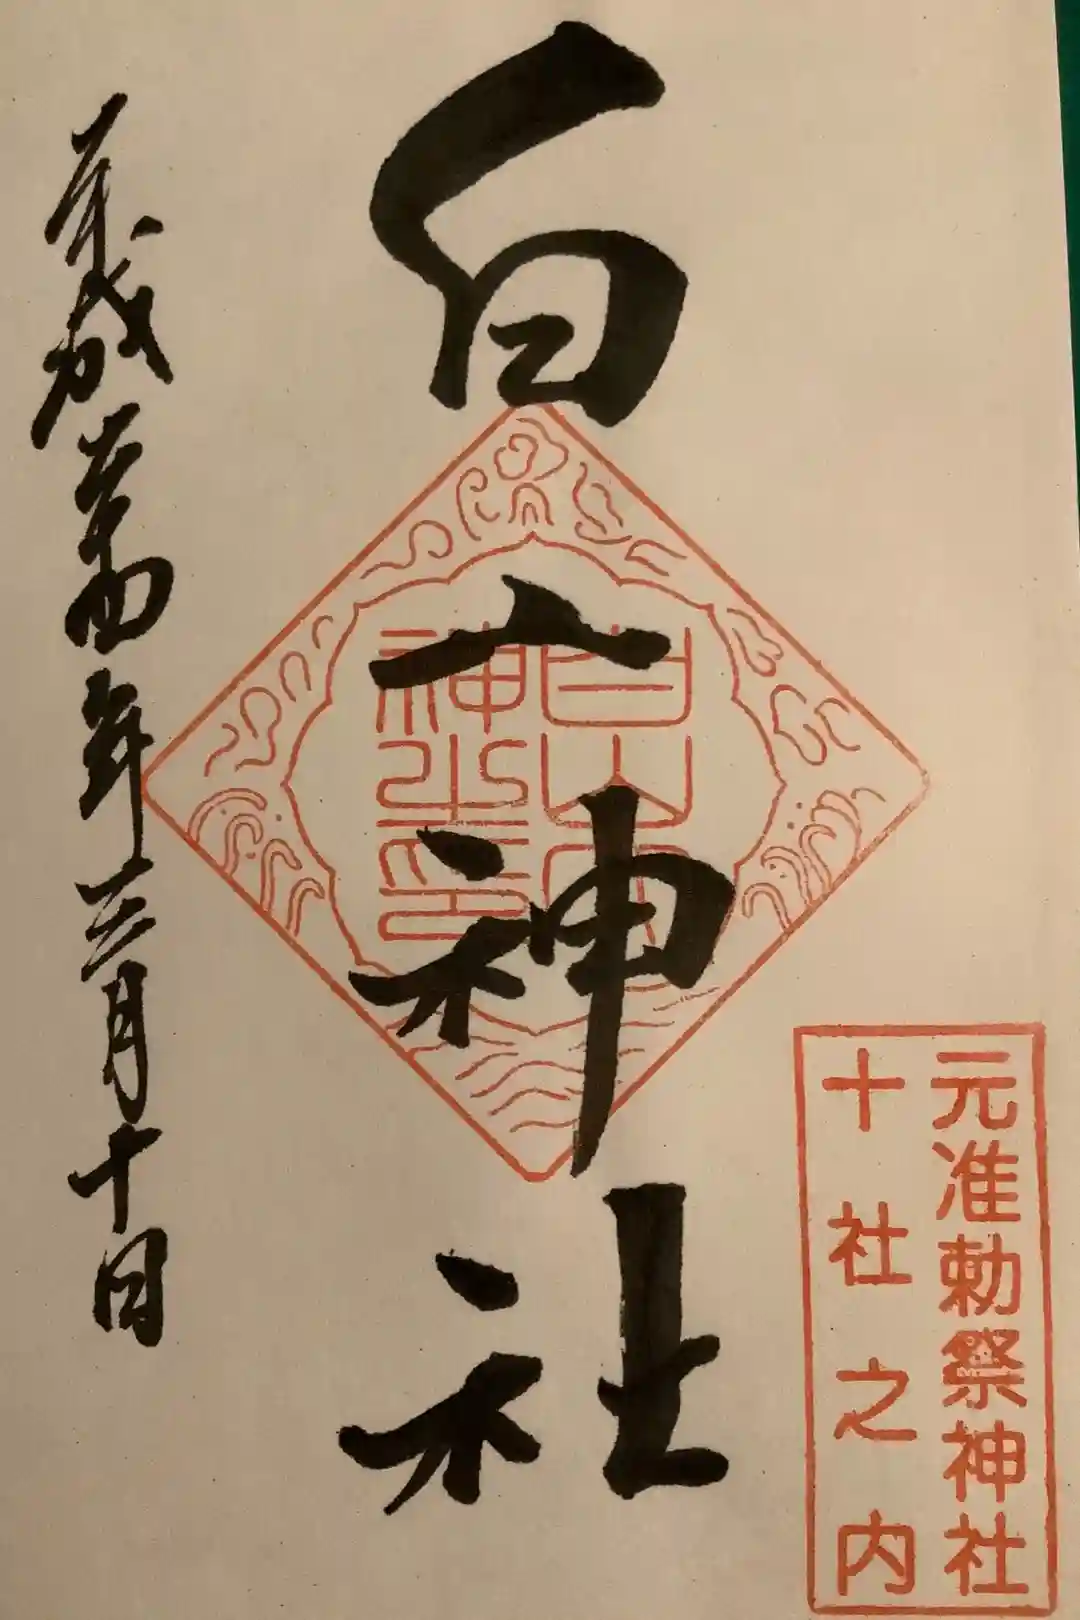 元准勅祭神社
十社之内
白山神社
白山
神之印
平成廿四年三月十日